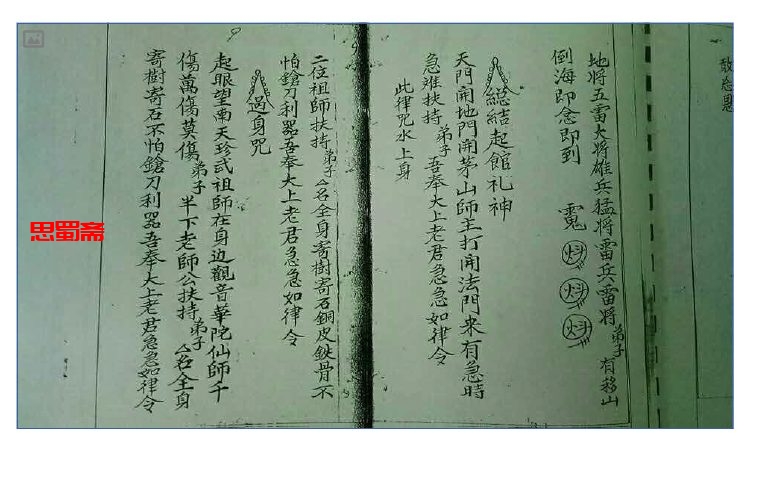 敢忩㤙
地將五雷大將雄兵猛將雷兵雷將弟子有移山
倒海即念即到
總結起館礼神
天門開地門開茅山師主打開法門來有急時
急难扶持弟子吾奉大上老君急急如律令
此律咒水上身
二位祖師扶持弟子厶名全身寄樹寄石銅皮鉄骨不
怕鎗刀利器吾奉大上老君急急如律令
過身咒
起眼望南天珍武祖師在身边觀音華陀仙師千
傷萬傷莫傷弟子半下老師公扶持弟子厶名全身
寄樹寄石不怕鎗刀利器吾奉大上老君急急如律令
思蜀斋